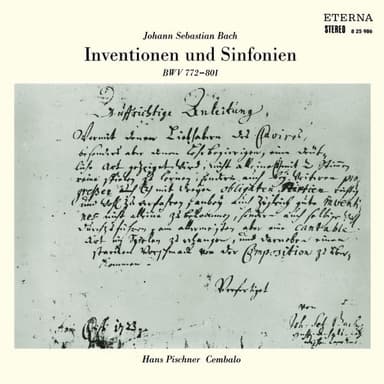 Johann Sebastian Bach
ETERNA
STEREO 8 25 986
Inventionen und Sinfonien
BWV 772–801
Auffrichtige Anleitung,
Wormit denen Liebhabern des Clavires,
besonders aber denen Lehrbegierigen, eine deüt-
liche Art gezeiget wird, nicht alleine mit 2 Stimen
reine spielen zu lernen, sondern auch bey weiteren pro-
greßen auch mit dreyen obligaten Partien richtig
und wohl zu verfahren, anbey auch zugleich gute inventi-
ones nicht alleine zu bekommen, sondern auch selbige wohl
durchzuführen, am allermeisten aber eine cantable
Art im Spielen zu erlangen, und darneben einen
starcken Vorschmack von der Composition zu über-
kommen.
Verfertiget
von
1723. Joh. Seb. Bach
Hans Pischner Cembalo